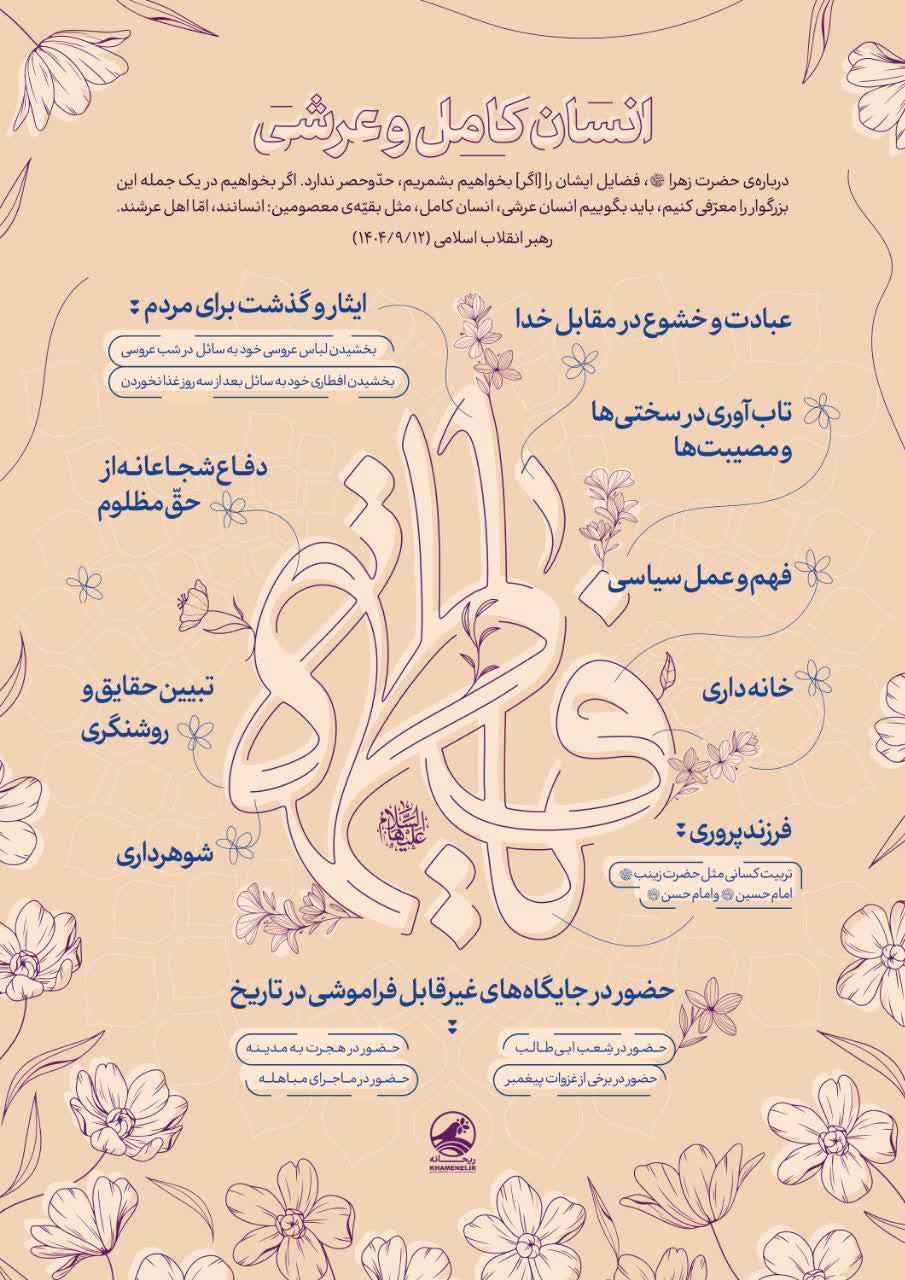 انسان کامل و عرشی
درباره‌ی حضرت زهرا ﷺ، فضایل ایشان را [اگر] بخواهیم بشمریم، حدّوحصر ندارد. اگر بخواهیم در یک جمله این
بزرگوار را معرّفی کنیم، باید بگوییم انسان عرشی، انسان کامل، مثل بقیّه‌ی معصومین؛ انسانند، امّا اهل عرشند.
رهبر انقلاب اسلامی (۱۴۰۴/۹/۱۲)
عبادت و خشوع در مقابل خدا
تاب‌آوری در سختی‌ها
و مصیبت‌ها
فهم و عمل سیاسی
خانه‌داری
فرزندپروری
تربیت کسانی مثل حضرت زینب
امام حسین و امام حسن
ایثار و گذشت برای مردم
بخشیدن لباس عروسی خود به سائل در شب عروسی
بخشیدن افطاری خود به سائل بعد از سه روز غذا نخوردن
دفاع شجاعانه از
حقّ مظلوم
تبیین حقایق و
روشنگری
شوهرداری
فاطمه
علیها السّلام
حضور در جایگاه‌های غیرقابل فراموشی در تاریخ
حضور در شِعب ابی‌طالب
حضور در برخی از غزوات پیغمبر
حضور در هجرت به مدینه
حضور در ماجرای مباهله
ریحانه
KHAMENEI.IR